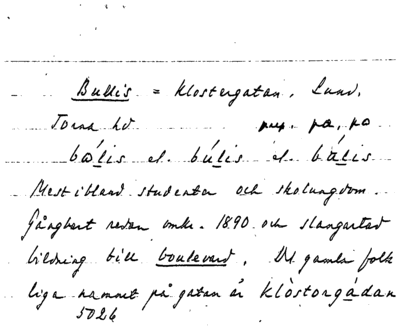 Bullis = Klostergatan, Lund,
Torna hd prep. på, på
bo̊lis el. búlis el. bålis
Mest ibland studenter och skolungdom.
Gångbart redan omkr. 1890 och slangartad
bildning till boulevard. Det gamla folk
liga namnet på gatan är klòstorgådan
5026